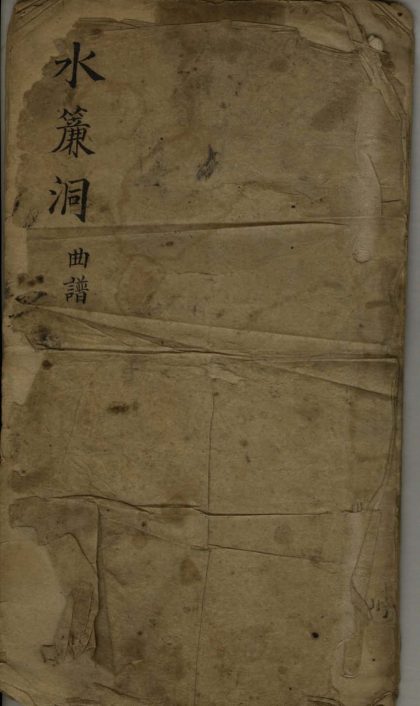 水簾洞
曲譜